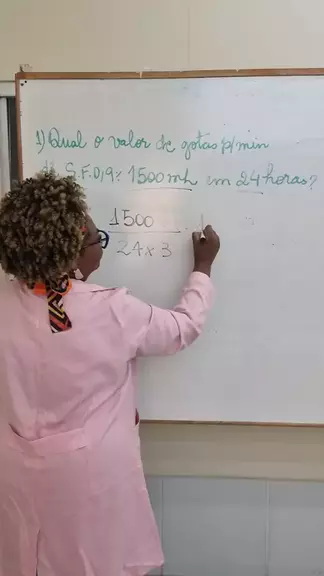 1) Qual o valor de gotas p/min
de S.F.0,9% 1500 ml em 24 horas?
1500
24 x 3